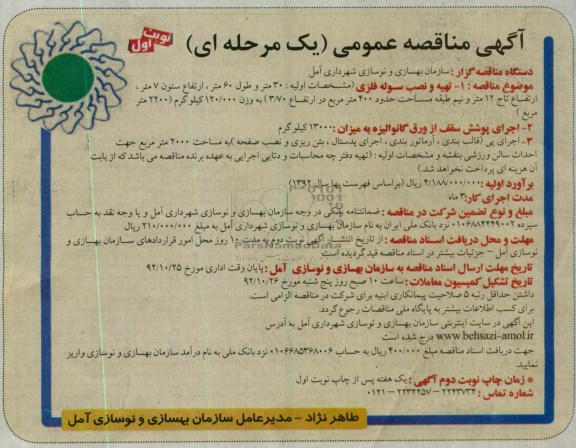 آگهی مناقصه عمومی (یک مرحله ای)
نوبت اول
دستگاه مناقصه گزار : سازمان بهسازی و نوسازی شهرداری آمل
موضوع مناقصه : ۱- تهیه و نصب سوله فلزی (مشخصات اولیه : ۳۰ متر و طول ۶۰ متر ، ارتفاع ستون ۷ متر ،
ارتفاع تاج ۱۲ متر و نیم طبقه مساحت حدود ۴۰۰ متر مربع در ارتفاع ۳/۷۰ ) به وزن ۱۲۰/۰۰۰ کیلوگرم (۲۲۰۰ متر
مربع )
۲- اجرای پوشش سقف از ورق گالوانیزه به میزان : ۱۳۰۰۰ کیلوگرم
۳- اجرای پی (قالب بندی ، آرماتور بندی ، اجرای پدستال ، بتن ریزی و نصب صفحه )به مساحت ۲۰۰۰ متر مربع جهت
احداث سالن ورزشی بنفشه و مشخصات اولیه : (تهیه دفتر چه محاسبات و دتایی اجرایی به عهده برنده مناقصه می باشد که از بابت
آن هزینه ای پرداخت نخواهد شد.)
برآورد اولیه : ۴/۱۸۸/۰۰۰/۰۰۰ ریال (براساس فهرست بها سال ۱۳۹۲)
مدت اجرای کار: ۳ ماه
مبلغ و نوع تضمین شرکت در مناقصه : ضمانتنامه بانکی در وجه سازمان بهسازی و نوسازی شهرداری آمل و یا وجه نقد به حساب
سپرده ۰۱۰۶۸۸۴۴۴۹۰۰۲ نزد بانک ملی ایران به نام سازمان بهسازی و نوسازی شهرداری آمل به مبلغ ۲۱۰/۰۰۰/۰۰۰ ریال
مهلت و محل دریافت اسناد مناقصه : از تاریخ انتشار آگهی نوبت دوم به مدت ۱۰ روز محل امور قراردادهای سازمان بهسازی و
نوسازی آمل – جزئیات بیشتر در اسناد مناقصه قید گردیده است
تاریخ مهلت ارسال اسناد مناقصه به سازمان بهسازی و نوسازی آمل : پایان وقت اداری مورخ ۹۲/۱۰/۲۵
تاریخ تشکیل کمیسیون معاملات : ساعت ۱۰ صبح روز پنج شنبه مورخ ۹۲/۱۰/۲۶
داشتن حداقل رتبه ۵ صلاحیت پیمانکاری ابنیه برای شرکت در مناقصه الزامی است.
برای کسب اطلاعات بیشتر به پایگاه ملی مناقصات رجوع گردد.
این آگهی در سایت اینترنتی سازمان بهسازی و نوسازی شهرداری آمل به آدرس
www.behsazi-amol.ir درج شده است
جهت دریافت اسناد مناقصه مبلغ ۴۰۰/۰۰۰ ریال به حساب ۰۱۰۶۶۸۵۳۶۸۰۰۶ نزد بانک ملی به نام درآمد سازمان بهسازی و نوسازی واریز
نمایید
* زمان چاپ نوبت دوم آگهی : یک هفته پس از چاپ نوبت اول
شماره تماس : ۲۲۴۳۷۳۴ – ۲۲۳۲۲۵۷ – ۰۱۲۱
طاهر نژاد – مدیرعامل سازمان بهسازی و نوسازی آمل